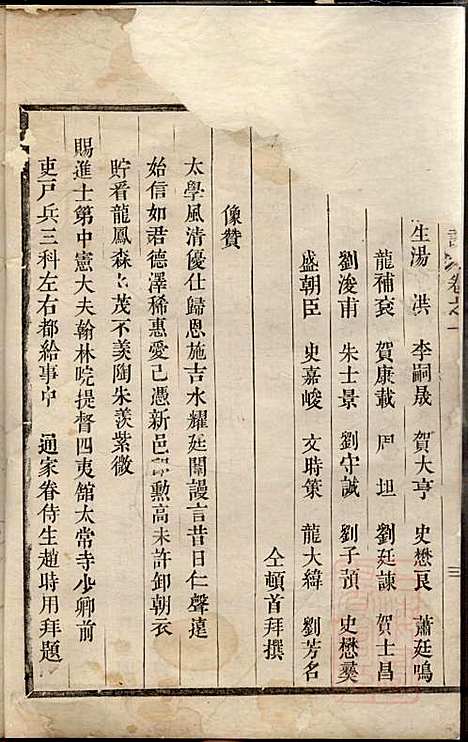 卷之一 三
生湯 洪 李嗣晟 賀大亨 史懋良 蕭廷鳴
龍補袞 賀康載 尹 坦 劉廷諫 賀士昌
劉浚甫 朱士景 劉守誠 劉子預 史懋羹
盛朝臣 史嘉峻 文時策 龍大緯 劉芳名
仝頓首拜撰
像贊
太學風清優仕歸恩施吉水耀廷闈謾言昔日仁聲遠
始信如君德澤稀惠愛已憑新邑 勲高未許卸朝衣
貯看龍鳳森 茂不羡陶朱羡紫微
賜進士第中憲大夫翰林院提督四夷館太常寺少卿前
吏戸兵三科左右都給事中 通家眷侍生趙時用拜題